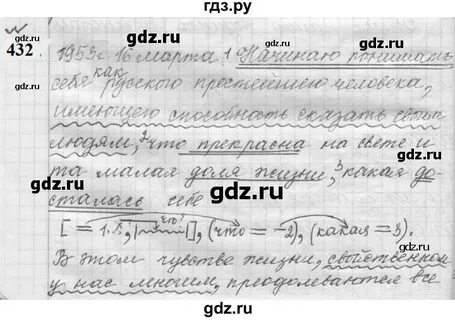 gdz.ru
gdz.ru gdz.ru
432 1953г. 16 марта 1 Начинаю понимать
себя как русского простейшего человека,
gdz.ru gdz.ru
имеющего способность сказать своим
людям, 2 что прекрасна на свете и
gdz.ru
та малая доля жизни, 3 какая до-
сталась себе
gdz.ru gdz.ru
[= 1. X, |что?|], (что = -2), (какая = 3).
В этом чувстве жизни, свойственном
gdz.ru
у нас многим, преодолеваются все
gdz.ru